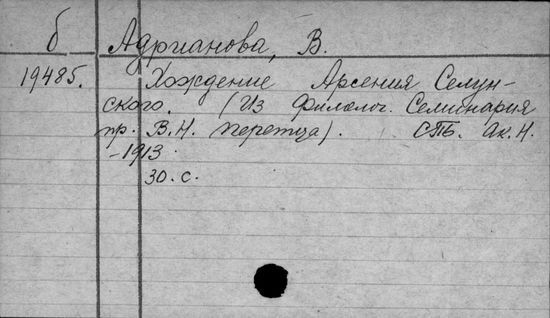 б Адрианова, В.
19485. Хождение Арсения Селун-
ского. (Из Филолог. Семинария
пр. В.Н. Перетца). СПБ. Ак.Н.
-1913.
30. с.